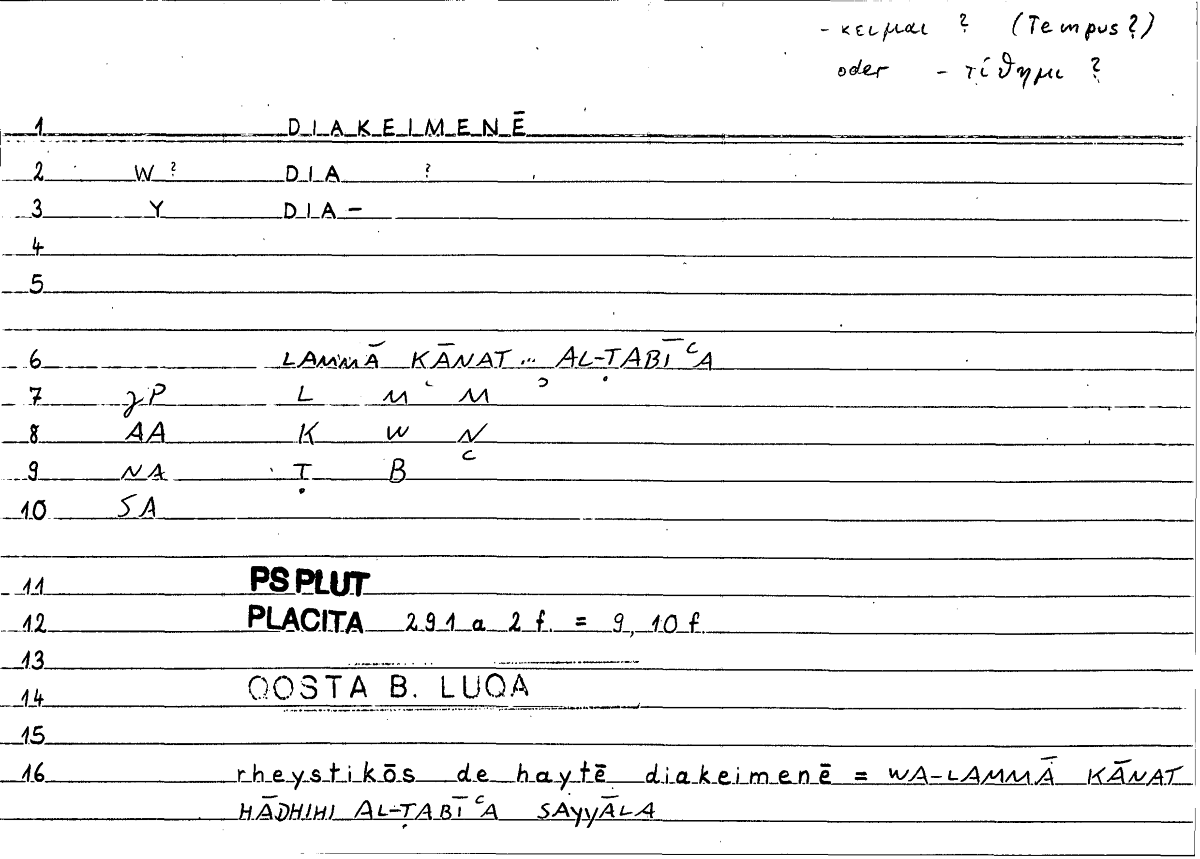 - κειμαι ? (Tempus?)
oder - τίθημι ?
1 DIAKEIMENĒ
2 W? DIA ?
3 Y DIA-
4
5
6 LAMMĀ KĀNAT... AL-ṬABĪʿA
7 γP L M M ʾ
8 AA K W N
9 NA Ṭ B ʿ
10 SA
11 PS PLUT
12 PLACITA 291 a 2 f. = 9, 10 f.
13
14 QOSTA B. LUQA
15
16 rheystikōs de haytē diakeimenē = WA-LAMMĀ KĀNAT
HĀDHIHI AL-ṬABĪʿA SAYYĀLA